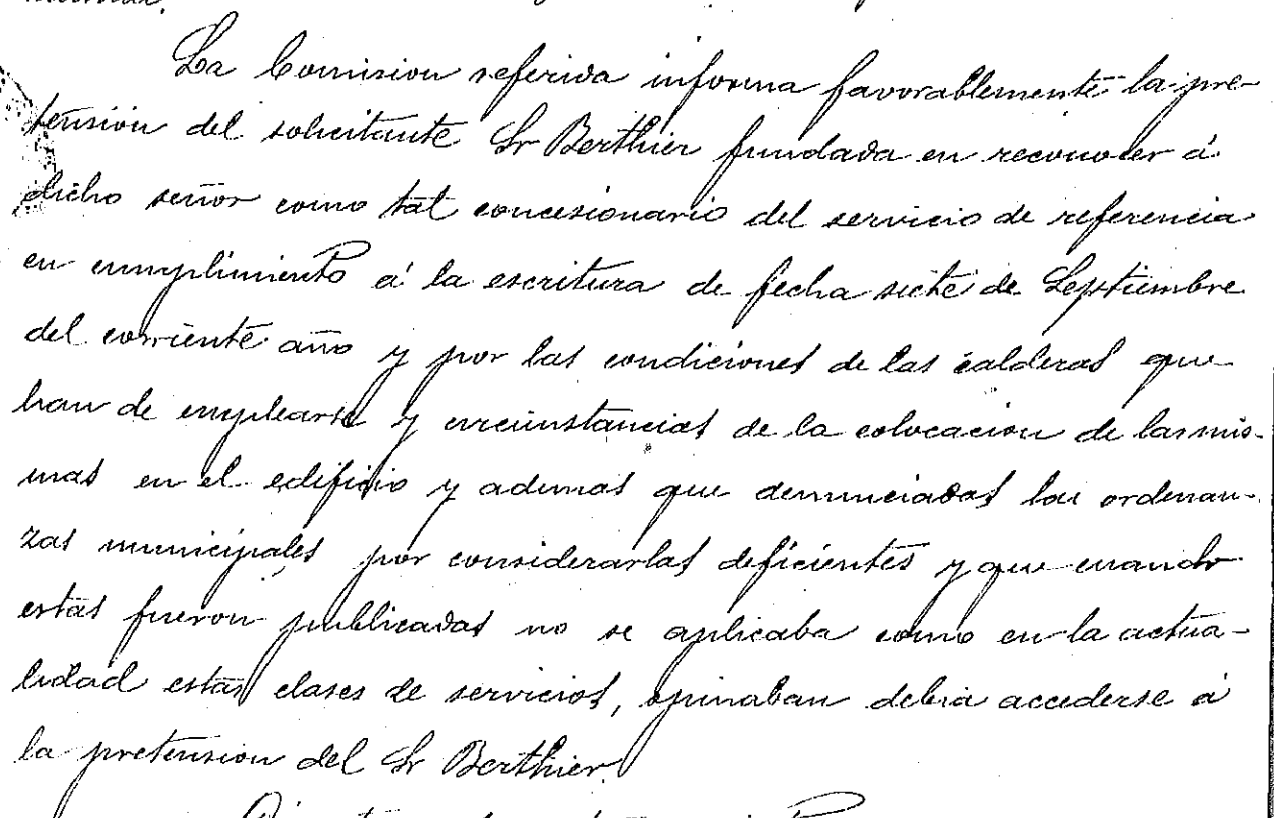 La Comision referida informa favorablemente la pre-
tensión del solicitante Sr Berthier fundada en reconocer á
dicho señor como tal concesionario del servicio de referencia
en cumplimiento á la escritura de fecha siete de Septiembre
del corriente año y por las condiciones de las calderas que
han de emplearse y circunstancias de la colocacion de las mis-
mas en el edificio y ademas que denunciadas las ordenan-
zas municipales por considerarlas deficientes y que cuando
estas fueron publicadas no se aplicaba como en la actua-
lidad estas clases de servicios, opinaban debia accederse á
la pretension del Sr Berthier.